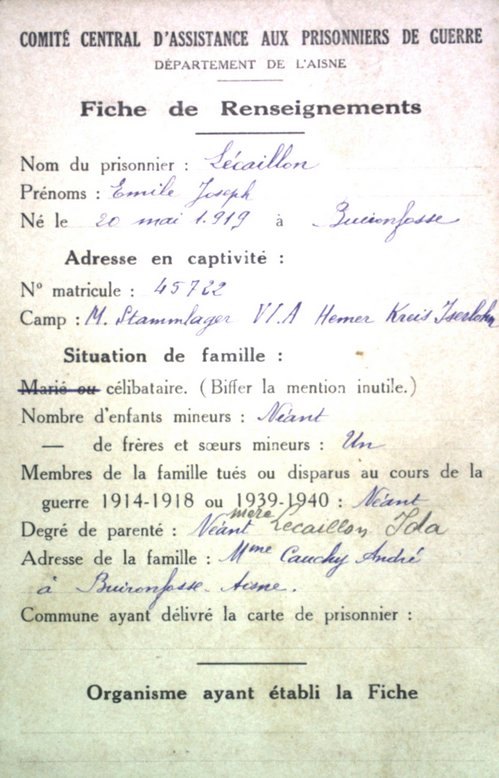 COMITÉ CENTRAL D'ASSISTANCE AUX PRISONNIERS DE GUERRE
DÉPARTEMENT DE L'AISNE
Fiche de Renseignements
Nom du prisonnier : Lécaillon
Prénoms : Emile Joseph
Né le 20 mai 1.919 à Buironfosse
Adresse en captivité :
N° matricule : 45722
Camp : M. Stammlager VI.A Hemer Kreis Iserlohn
Situation de famille :
Marié ou célibataire. (Biffer la mention inutile.)
Nombre d'enfants mineurs : Néant
— de frères et sœurs mineurs : Un
Membres de la famille tués ou disparus au cours de la
guerre 1914-1918 ou 1939-1940 : Néant
Degré de parenté : Néant mère Lecaillon Ida
Adresse de la famille : Mme Cauchy André
à Buironfosse. Aisne.
Commune ayant délivré la carte de prisonnier :
Organisme ayant établi la Fiche